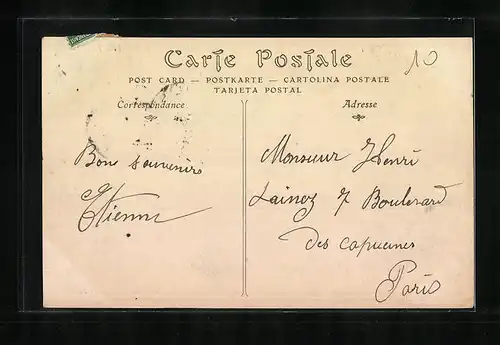 Carte Postale
POST CARD — POSTKARTE — CARTOLINA POSTALE
TARJETA POSTAL
Correspondance
Adresse
10
Bons souvenirs
Etienne
Monsieur Henri
7 Boulevard
des capucines
Paris